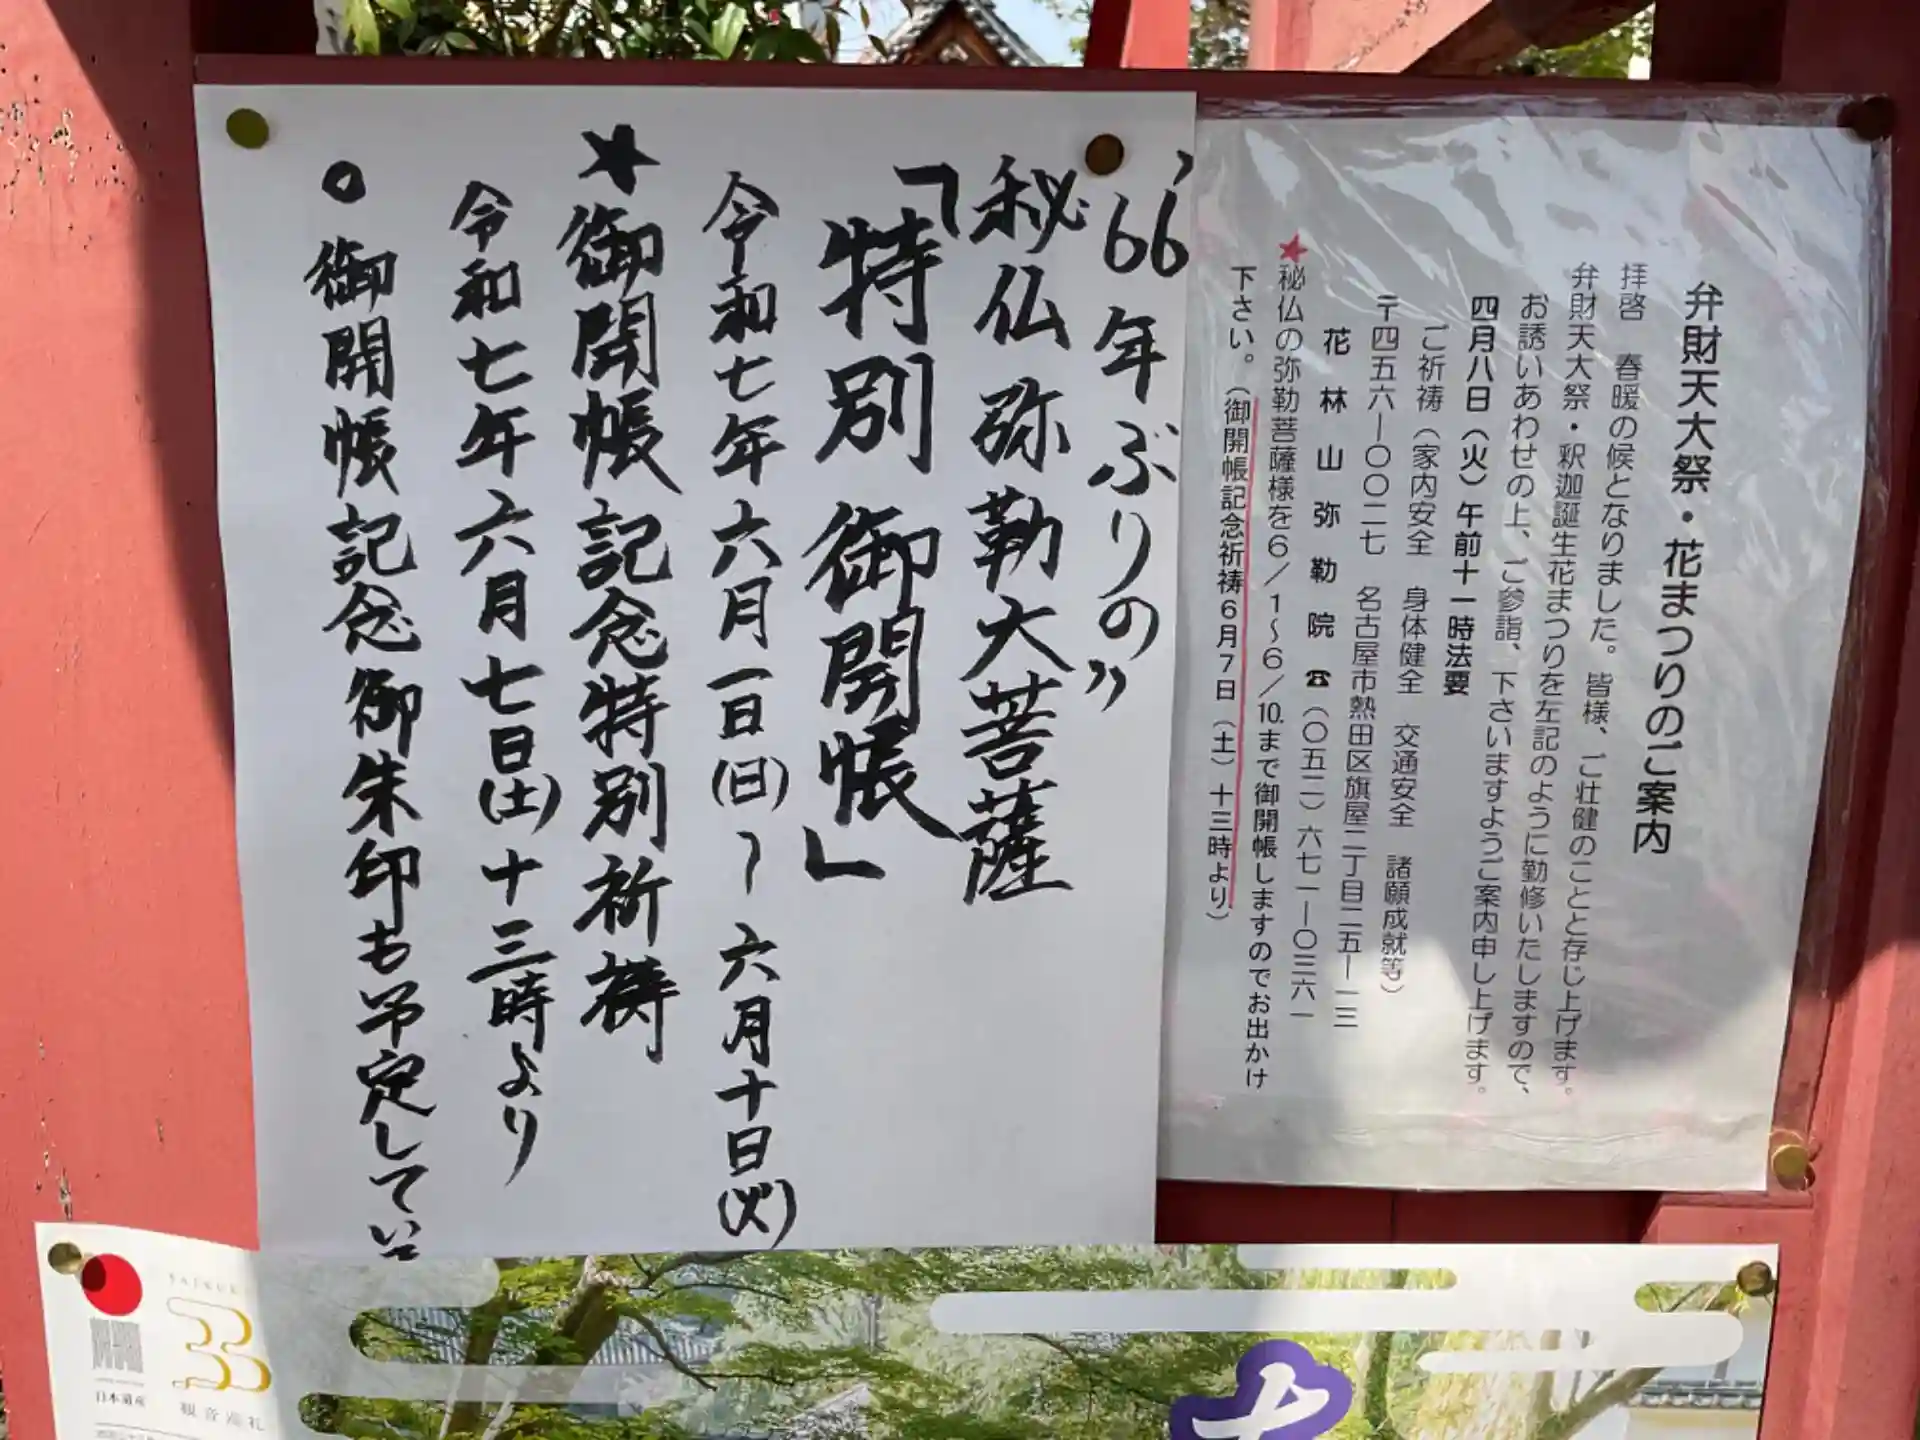 弁財天大祭・花まつりのご案内
拝啓　春暖の候となりました。皆様、ご壮健のことと存じ上げます。
弁財天大祭・釈迦誕生花まつりを左記のように勤修いたしますので、
お誘いあわせの上、ご参詣、下さいますようご案内申し上げます。
四月八日（火）午前十一時法要
ご祈祷（家内安全　身体健全　交通安全　諸願成就等）
〒四五六―〇〇二七　名古屋市熱田区旗屋二丁目二五―一三
花林山弥勒院　☎（〇五二）六七一―〇三六一
★秘仏の弥勒菩薩様を6／1～6／10.まで御開帳しますのでお出かけ
下さい。（御開帳記念祈祷6月7日（土）十三時より）
〝66年ぶりの〟
秘仏弥勒大菩薩
「特別御開帳」
令和七年六月一日(日)～六月十日(火)
★御開帳記念特別祈祷
令和七年六月七日(土)十三時より
○御開帳記念御朱印も予定してい
日本遺産
SAIKOKU
33
観音巡礼